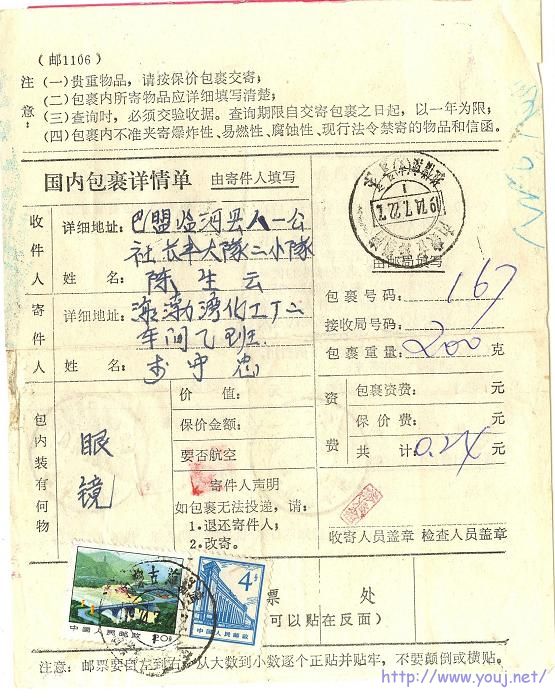 (邮1106)
注意:
(一)贵重物品，请按保价包裹交寄；
(二)包裹内所寄物品应详细填写清楚；
(三)查询时，必须交验收据。查询期限自交寄包裹之日起，以一年为限；
(四)包裹内不准夹寄爆炸性、易燃性、腐蚀性、现行法令禁寄的物品和信函。
国内包裹详情单 由寄件人填写
收件人
详细地址: 巴盟临河县八一公
社长丰大隊二小隊
姓名: 陈生云
寄件人
详细地址: 海渤湾化工厂二
车间乙班
姓名: 李守忠
包内装有何物
眼镜
价值:
保价金额:
要否航空
寄件人声明
如包裹无法投递，请:
1.退还寄件人；
2.改寄。
由邮局填写
包裹号码: 167
接收局号码:
包裹重量: 200 克
资费
包裹资费: 元
保价费: 元
共计: 0.24 元
收寄人员盖章 检查人员盖章
中国人民邮政
20分
4分
中国人民邮政
票 处
可以贴在反面)
注意: 邮票要自左到右，从大数到小数逐个正贴并贴牢，不要颠倒或横贴。
http://www.youj.net/